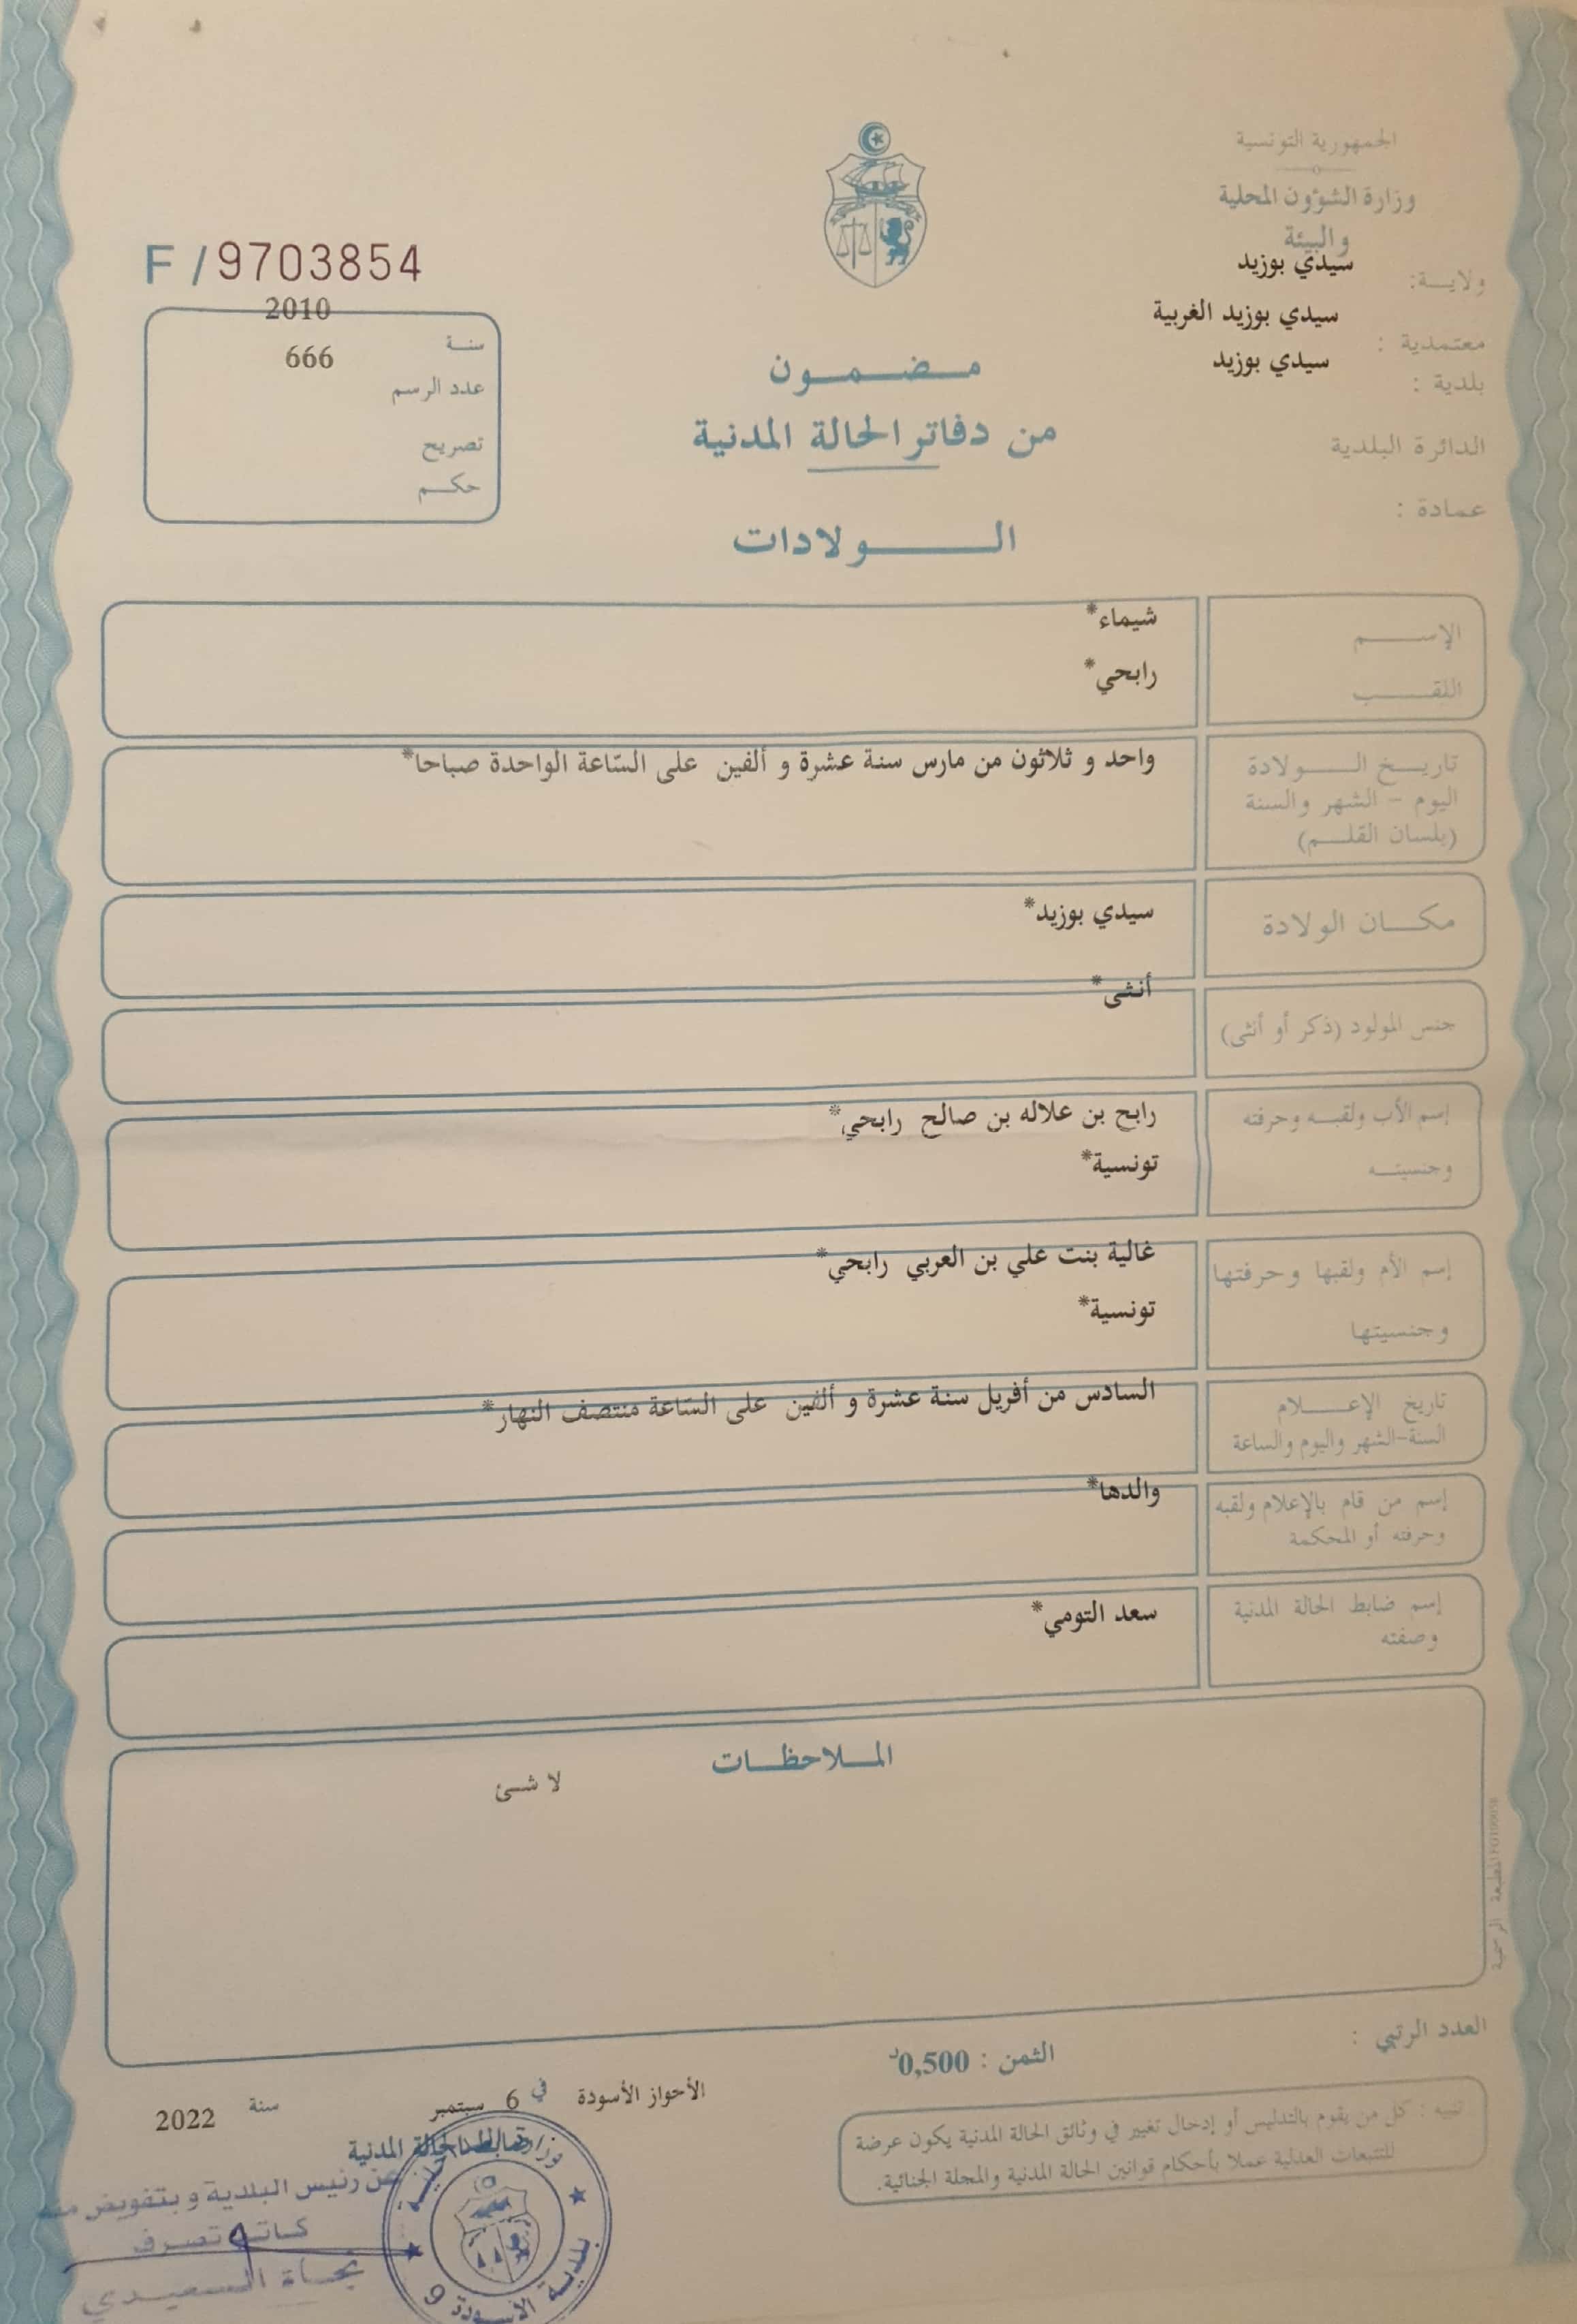 الجمهورية التونسية
وزارة الشؤون المحلية
والبيئة
ولايـة: سيدي بوزيد
معتمدية : سيدي بوزيد الغربية
بلدية : سيدي بوزيد
الدائرة البلدية
عمادة :
F / 9703854
2010
سنة
666
عدد الرسم
تصريح
حكم
مضمون
من دفاتر الحالة المدنية
الولادات
الإسم
شيماء*
اللقب
رابحي*
تاريخ الولادة
اليوم - الشهر والسنة
(بلسان القلم)
واحد و ثلاثون من مارس سنة عشرة و ألفين على السّاعة الواحدة صباحا*
مكان الولادة
سيدي بوزيد*
جنس المولود (ذكر أو أنثى)
أنثى*
إسم الأب ولقبه وحرفته
وجنسيته
رابح بن علاله بن صالح رابحي*
تونسية*
إسم الأم ولقبها وحرفتها
وجنسيتها
غالية بنت علي بن العربي رابحي*
تونسية*
تاريخ الإعلام
السنة-الشهر واليوم والساعة
السادس من أفريل سنة عشرة و ألفين على السّاعة منتصف النهار*
إسم من قام بالإعلام ولقبه
وحرفته أو المحكمة
والدها*
إسم ضابط الحالة المدنية
وصفته
سعد التومي*
الملاحظات
لا شئ
المطبعة الرسمية
العدد الرتبي :
الثمن : 0,500د
تنبيه : كل من يقوم بالتدليس أو إدخال تغيير في وثائق الحالة المدنية يكون عرضة
للتتبعات العدلية عملا بأحكام قوانين الحالة المدنية والمجلة الجنائية.
الأحواز الأسودة في 6 سبتمبر سنة 2022
ضابط الحالة المدنية
عن رئيس البلدية و بتفويض منه
كاتب تصرف
نجاة السعيدي
بلدية الأسودة 9